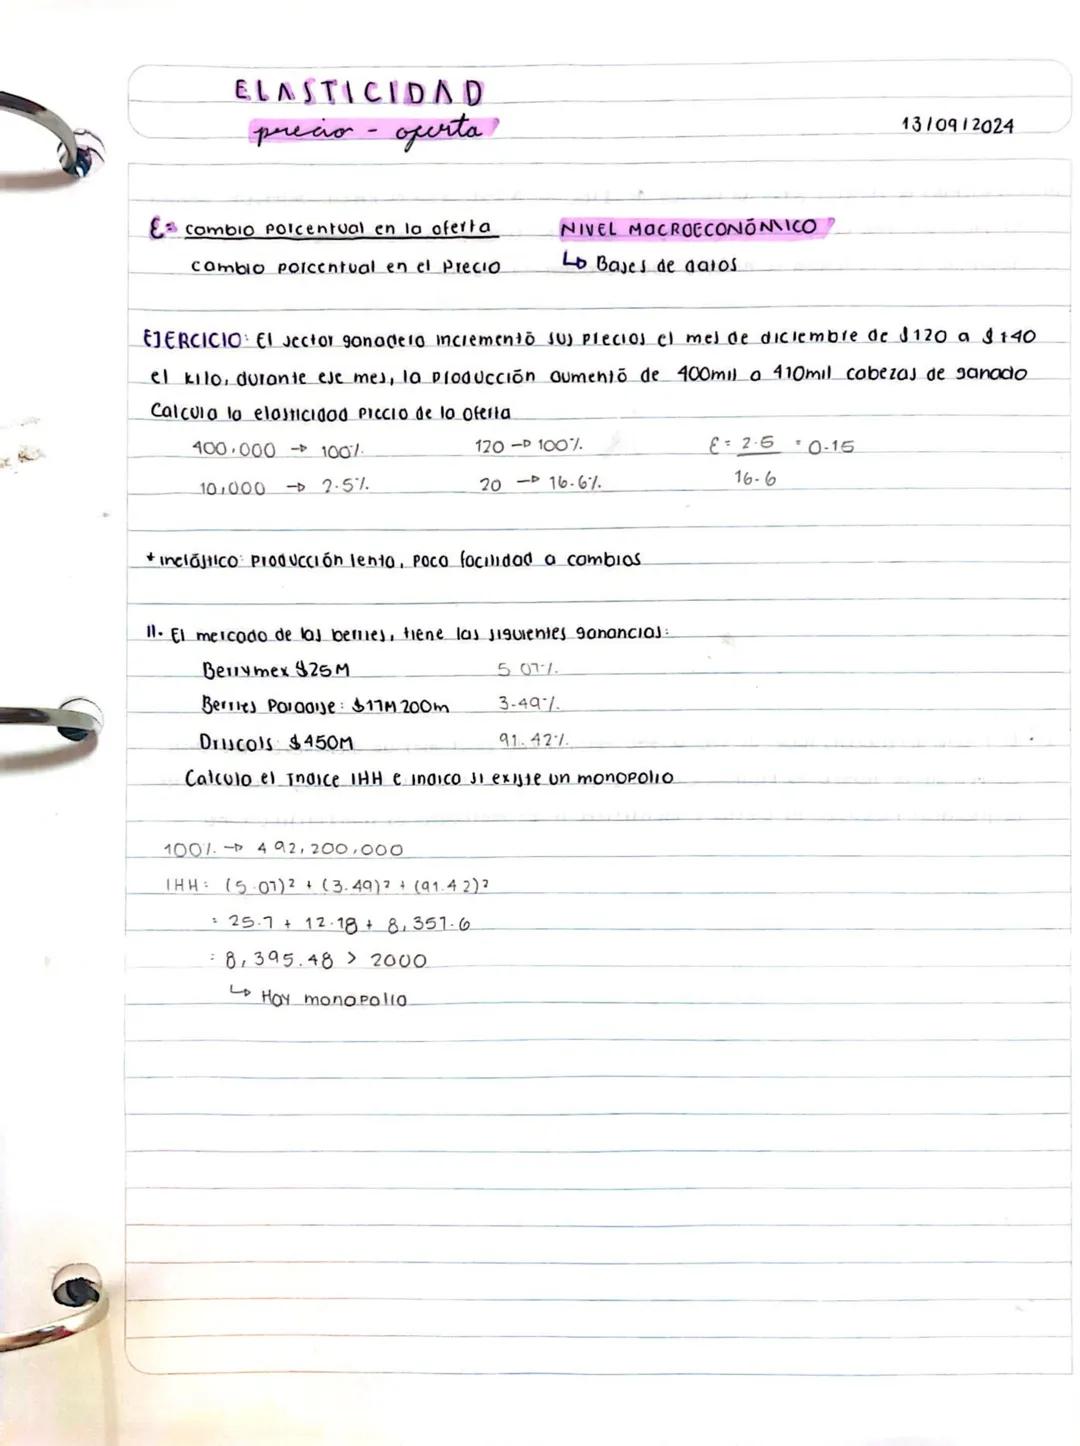 ELASTICIDAD
precio - oferta
13/09/2024
E= cambio porcentual en la oferta
cambio porcentual en el precio
NIVEL MACROECONÓMICO
↳ Bases de datos
EJERCICIO: El sector ganadero incrementó sus precios el mes de diciembre de $120 a $140
el kilo, durante ese mes, la producción aumentó de 400mil a 410mil cabezas de ganado
Calcula la elasticidad precio de la oferta
400,000 → 100%
120 → 100%
E = 2.5 = 0.15
10,000 → 2.5%
20 → 16.6%
16.6
* inelástico: producción lenta, poca facilidad a cambios
II. El mercado de las berries, tiene las siguientes ganancias:
Berrymex $25M 5.07%
Berries Paradise: $17M 200m 3.49%
Driscols $450M 91.42%
Calcula el Indice IHH e indica si existe un monopolio
100% → 492,200,000
IHH: (5.07)² + (3.49)² + (91.42)²
= 25.7 + 12.18 + 8,357.6
= 8,395.48 > 2000
↳ Hay monopolio